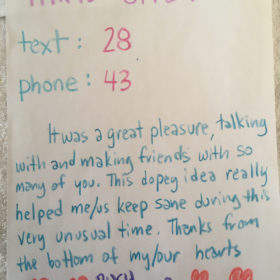 text: 28
phone: 43
It was a great pleasure, talking
with and making friends with so
many of you. This dopey idea really
helped me/us keep sane during this
very unusual time. Thanks from
the bottom of my/our hearts